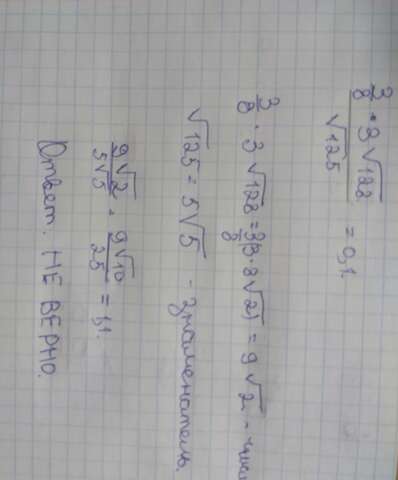 3/8 · 3√128 / √125 = 0,1.
3/8 · 3√128 = 3/8(3·8√2) = 9√2 - числ
√125 = 5√5 - Знаменатель.
9√2 / 5√5 = 9√10 / 25 = 1,1.
Ответ. НЕ ВЕРНО.